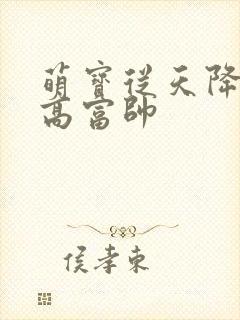 萌寶從天降
高富帥
侯孝東